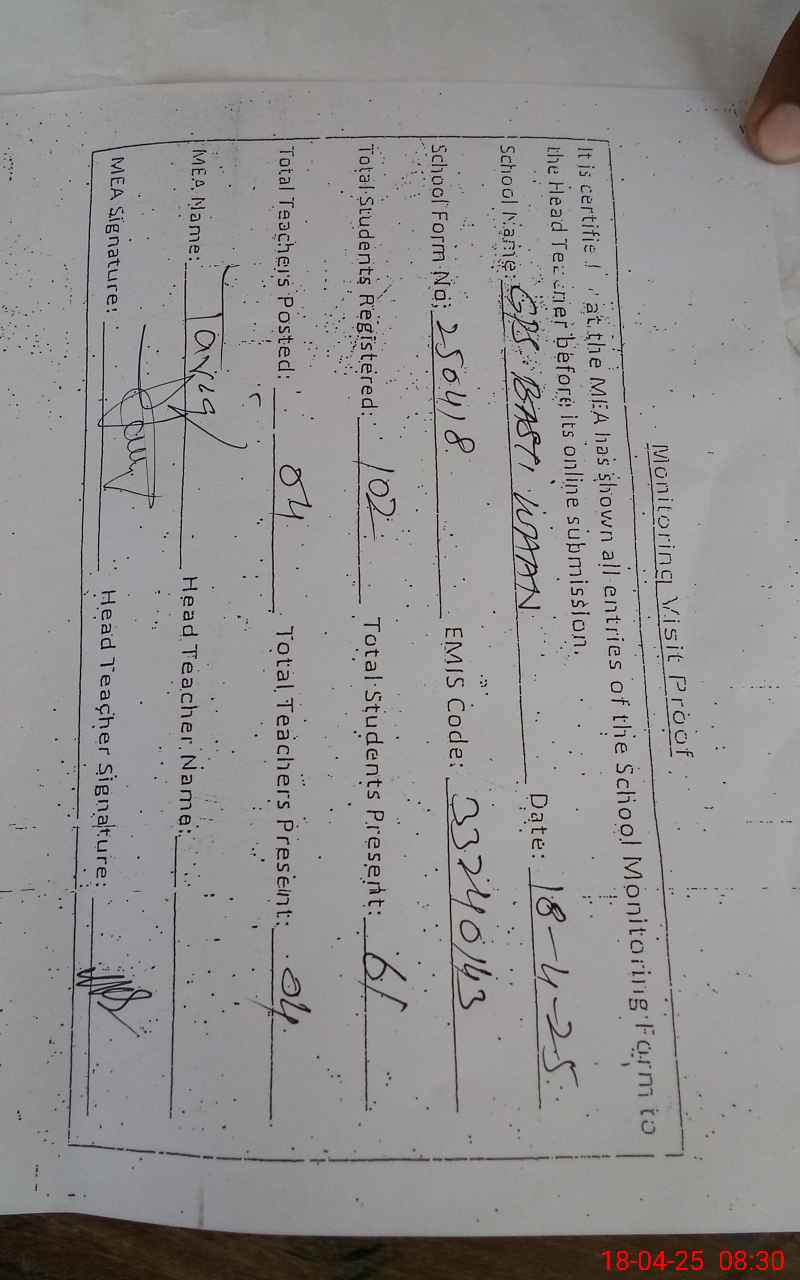 Monitoring Visit Proof
It is certified that the MEA has shown all entries of the School Monitoring Form to
the Head Teacher before its online submission.
School Name: GPS BASTI Date: 18-4-25
School Form No: 250418 EMIS Code: 33240143
Total Students Registered: 102 Total Students Present: 61
Total Teachers Posted: 04 Total Teachers Present: 04
MEA Name: Tariq Head Teacher Name:
MEA Signature: Head Teacher Signature:
18-04-25 08:30